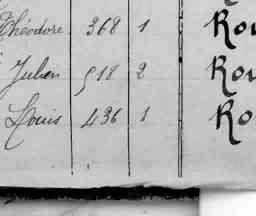 Théodore 368 1 Rou
Julien 518 2 Rou
Louis 436 1 Ro